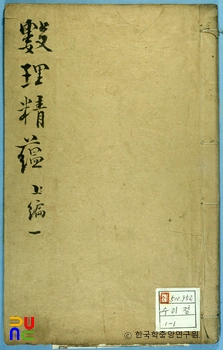 數理精蘊 上編 一
수리정
1-1
한국학중앙연구원